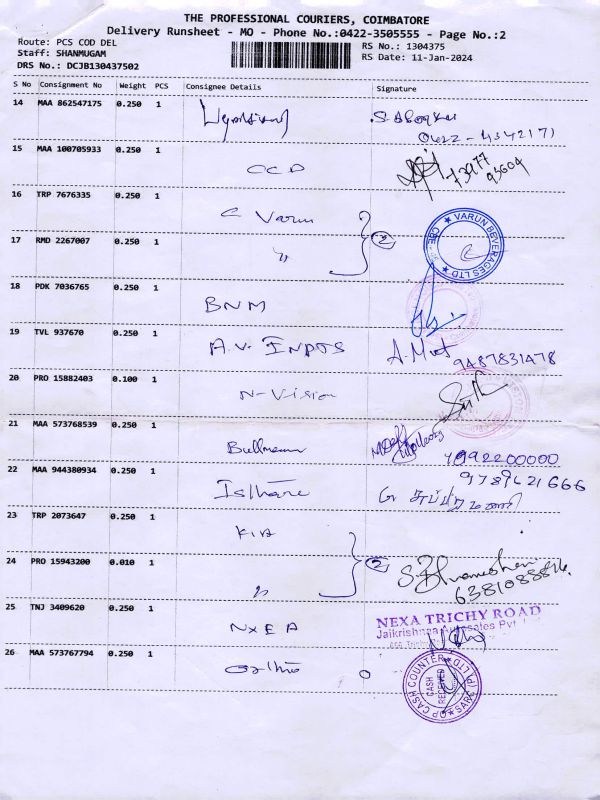 THE PROFESSIONAL COURIERS, COIMBATORE
Delivery Runsheet - MO - Phone No.:0422-3505555 - Page No.:2
Route: PCS COD DEL
RS No.: 1304375
Staff: SHANMUGAM
RS Date: 11-Jan-2024
DRS No.: DCJB130437502
S No Consignment No Weight PCS Consignee Details Signature
14 MAA 862547175 0.250 1
0422-4342171
15 MAA 100705933 0.250 1 CCD
73977
93604
16 TRP 7676335 0.250 1 C Varun
17 RMD 2267007 0.250 1 " 2
VARUN BEVERAGES LTD ★ CBE ★
18 PDK 7036765 0.250 1 BNM
19 TVL 937670 0.250 1 A.V. INDTS
9487831478
20 PRO 15882403 0.100 1 N-Vision
21 MAA 573768539 0.250 1 Bullmann
22 MAA 944380934 0.250 1 Isthare
9789621666
23 TRP 2073647 0.250 1 KIA
24 PRO 15943200 0.010 1 " 2
25 TNJ 3409620 0.250 1 NXEA
NEXA TRICHY ROAD
26 MAA 573767794 0.250 1
CASH COUNTER
CASH RECEIVED